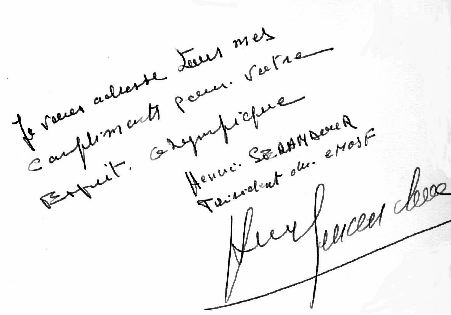 Je vous adresse tous mes
compliments pour votre
Esprit Olympique
Henri SERANDOUR
Président du CNOSF